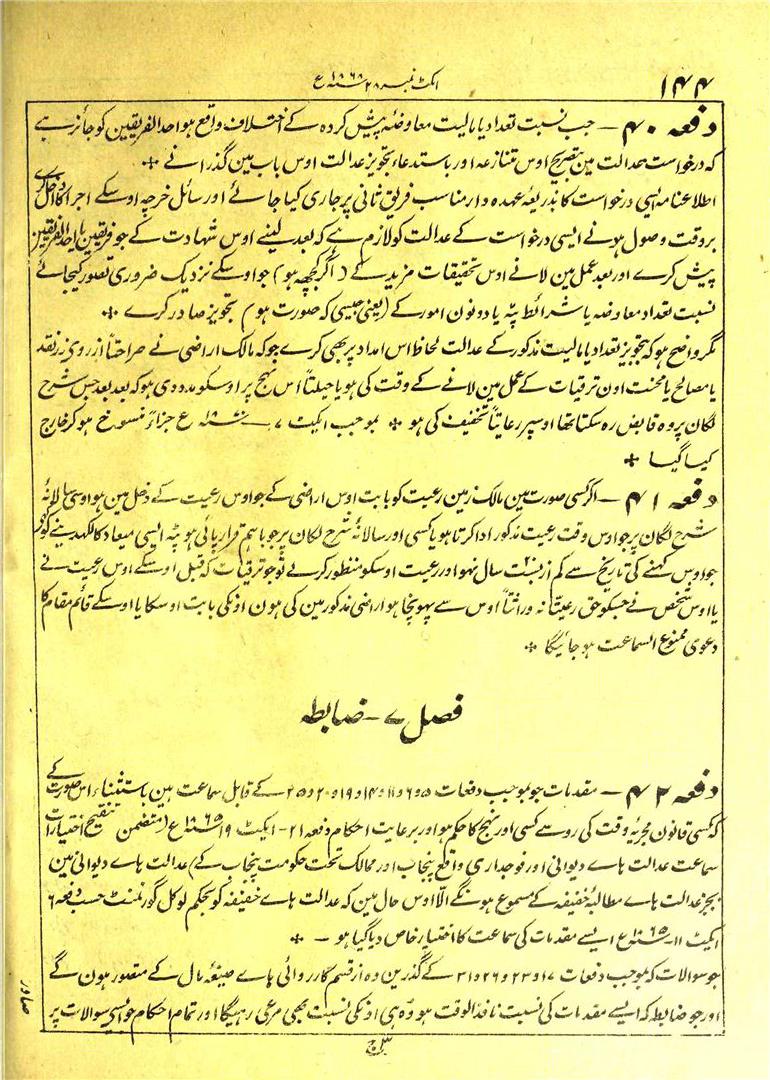 ۱۴۴
ایکٹ نمبر ۲۸ سنہ ۱۸۶۸ ع
دفعہ ۴۰ — جب نسبت تعداد یا مالیت معاوضہ پیش کردہ کے اختلاف واقع ہو احد الفریقین کو جائز ہے
کہ درخواست عدالت مین بتصریح اوس تنازعہ اور باستدعاء تجویز عدالت اوس باب مین گذرانے *
اطلاعنامہ ایسی درخواست کا بذریعہ عہدہ دار مناسب فریق ثانی پر جاری کیا جائے اور سائل خرچہ اوسکے اجرا کا داخل کرے
بروقت وصول ہونے ایسی درخواست کے عدالت کو لازم ہے کہ بعد لینے اوس شہادت کے جو فریقین یا احد الفریقین
پیش کرے اور بعد عمل مین لانے اوس تحقیقات مزید کے (اگر کچھہ ہو) جو اوسکے نزدیک ضروری تصور کیجائے
نسبت تعداد معاوضہ یا شرائط پٹہ یا دونون امور کے (یعنی جیسی کہ صورت ہو) تجویز صادر کرے *
مگر واضح ہو کہ بتجویز تعداد یا مالیت مذکور کے عدالت لحاظ اس امداد پر بھی کرے جو کہ مالک اراضی نے صراحتاً از روی زر نقد
یا مصالح یا محنت اون ترقیات کے عمل مین لانے کے وقت کی ہو یا حیلتاً اس نہج پر اوسکو مدد دی ہو کہ بعد بعد جس شرح
لگان پر وہ قابض رہ سکتا تھا اوسپر رعایتاً تخفیف کی ہو * بموجب ایکٹ ۷ — سنہ ۱۸۷۰ ع جزائر منسوخ ہو کر خارج
کیا گیا *
دفعہ ۴۱ — اگر کسی صورت مین مالک زمین رعیت کو بابت اوس اراضی کے جو اوس رعیت کے دخل مین ہو اوسی سالانہ
شرح لگان پر جو اوس وقت رعیت مذکور ادا کرتا ہو یا کسی اور سالانہ شرح لگان پر جو باہم قرار پائی ہو پٹہ ایسی میعاد کا لکھدینے کو کہے
جو اوس کہنے کی تاریخ سے کم از بست سال نہو اور رعیت اوسکو منظور کرلے تو جو ترقیات کہ قبل اوسکے اوس رعیت نے
یا اوس شخص نے جسکو حق رعیتانہ وراثتاً اوس سے پہونچا ہو اراضی مذکور مین کی ہون اونکی بابت اوسکا یا اوسکے قائم مقام کا
دعوی ممنوع السماعت ہو جائیگا *
فصل ۷ — ضابطہ
دفعہ ۴۲ — مقدمات جو بموجب دفعات ۵ و ۶ و ۱۱ و ۱۴ و ۱۹ و ۲۰ و ۲۵ کے قابل سماعت ہین باستثناء اس صورت کے
کہ کسی قانون مجریہ وقت کی رو سے کسی اور نہج کا حکم ہو اور برعایت احکام دفعہ ۲۱ — ایکٹ ۱۹ سنہ ۱۸۶۵ ع (متضمن تنقیح اختیارات
سماعت عدالت ہاے دیوانی اور فوجداری واقع پنجاب اور ممالک تحت حکومت پنجاب کے) عدالت ہاے دیوانی مین
بجز عدالت ہاے مطالبۂ خفیفہ کے مسموع ہونگے الّا اوس حال مین کہ عدالت ہاے خفیفہ کو بحکم لوکل گورنمنٹ حسب دفعہ ۶
ایکٹ ۱۱ — سنہ ۱۸۶۵ ع ایسے مقدمات کی سماعت کا اختیار خاص دیا گیا ہو — *
جو سوالات کہ بموجب دفعات ۱۷ و ۲۳ و ۲۶ و ۳۱ کے گذرین وہ از قسم کارروائی ہاے صیغۂ مال کے متصور ہون گے
اور جو ضابطہ کہ ایسے مقدمات کی نسبت نافذ الوقت ہو وہ ہی اونکی نسبت بھی مرعی رہیگا اور تمام احکام جو ایسی سوالات پر
صادر